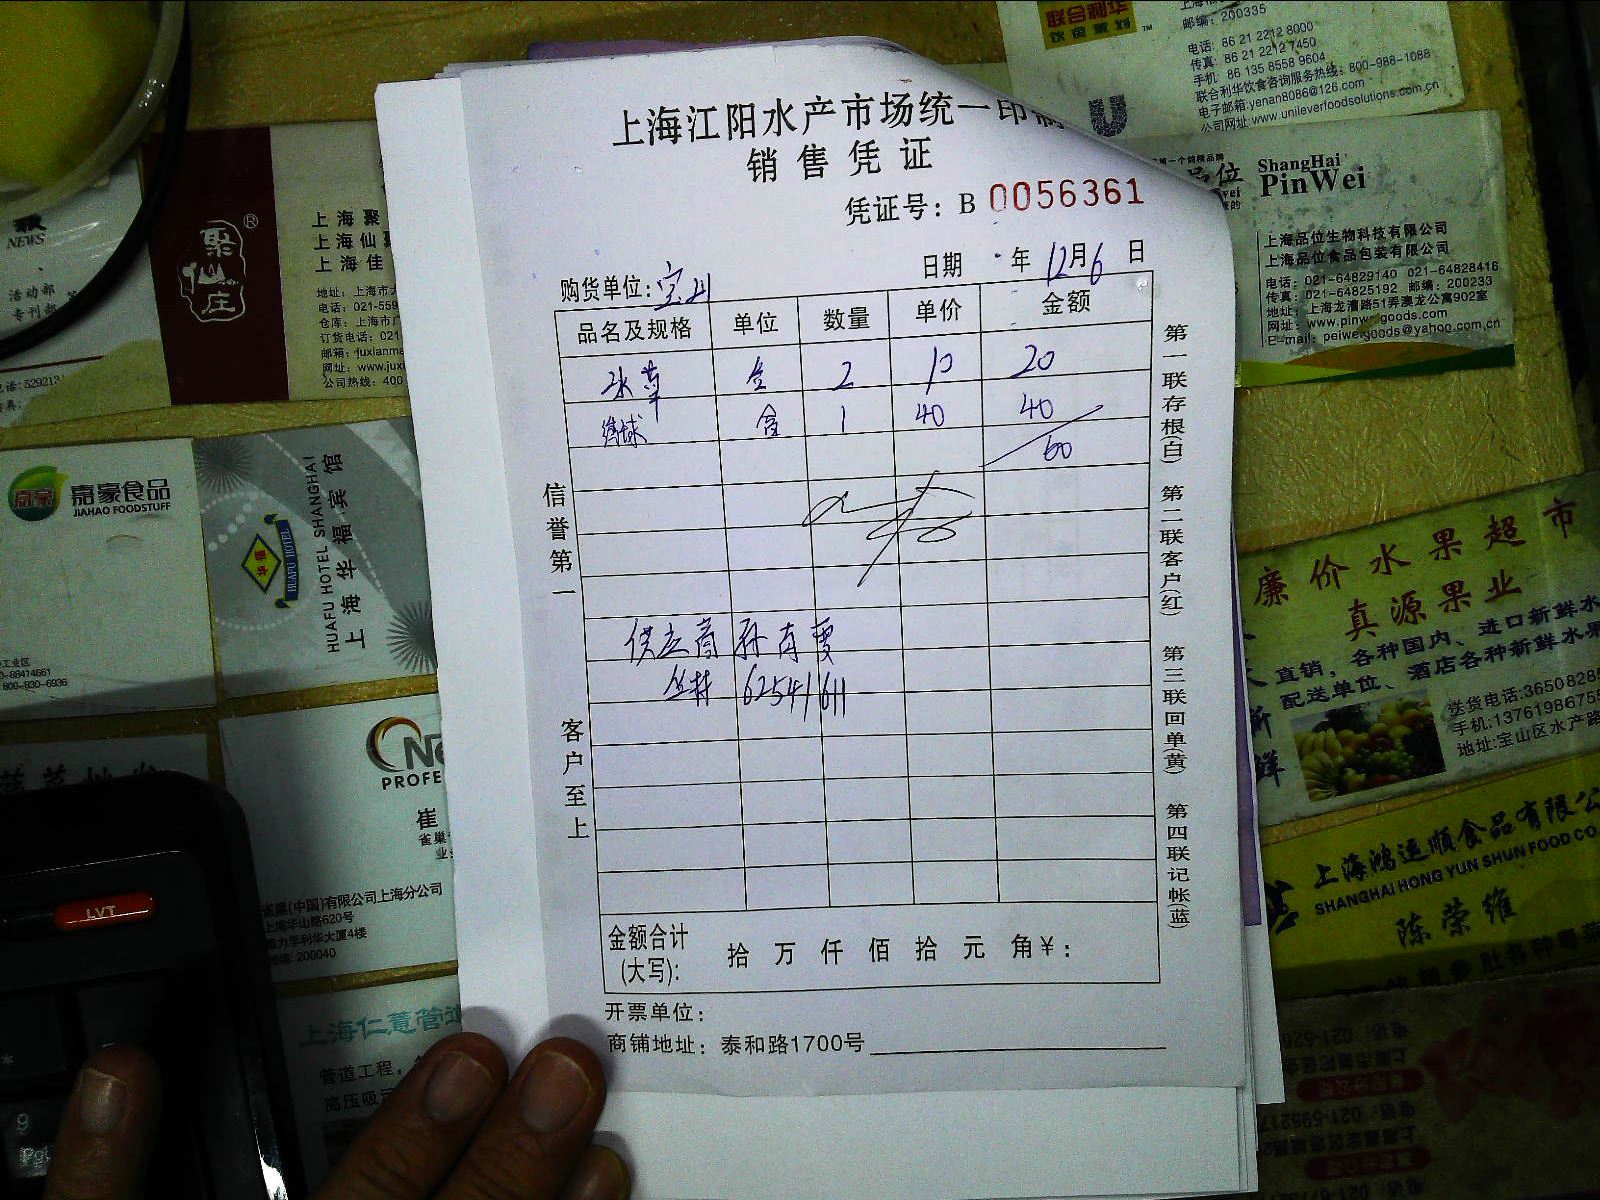 上海江阳水产市场统一印制
销售凭证
凭证号：B 0056361
日期 年 12月6日
购货单位：宝山
品名及规格 单位 数量 单价 金额
冰草 盒 2 10 20
绣球 盒 1 40 40
60
供应商 孙有雯
丛林 62541611
信誉第一
客户至上
第一联存根(白) 第二联客户(红) 第三联回单(黄) 第四联记帐(蓝)
金额合计
(大写)： 拾 万 仟 佰 拾 元 角 ¥：
开票单位：
商铺地址：泰和路1700号
联合利华
饮食策划 ™
邮编：200335
电话：86 21 2212 8000
传真：86 21 2212 7450
手机：86 135 8558 9604
联合利华饮食咨询服务热线：800-988-1088
电子邮箱:yenan8086@126.com
公司网址:www.unileverfoodsolutions.com.cn
品位 ShangHai
PinWei
上海品位生物科技有限公司
上海品位食品包装有限公司
电话：021-64829140 021-64828416
传真：021-64825192 邮编：200233
地址：上海龙漕路51弄澳龙公寓902室
网址：www.pinweigoods.com
E-mail：peiweigoods@yahoo.com.cn
廉价水果超市
真源果业
直销，各种国内、进口新鲜水
配送单位、酒店各种新鲜水果
新鲜
送货电话:3650828
手机:1376198675
地址:宝山区水产路
上海鸿运顺食品有限公
SHANGHAI HONG YUN SHUN FOOD CO.
陈荣维
NEWS
活动部
专刊部
聚仙庄®
上海聚
上海仙聚
上海佳
地址：上海市
电话：021-559
仓库：上海市
订货电话：021
邮箱：juxianma
网址：www.juxi
公司热线：400
嘉豪食品
JIAHAO FOODSTUFF
800-830-6936
华福
HUAFU HOTEL
HUAFU HOTEL SHANGHAI
上海华福宾馆
PROFE
崔
雀巢
雀巢(中国)有限公司上海分公司
上海华山路620号
邮编：200040
上海仁薏管道
管道工程，
高压吸
LVT
9